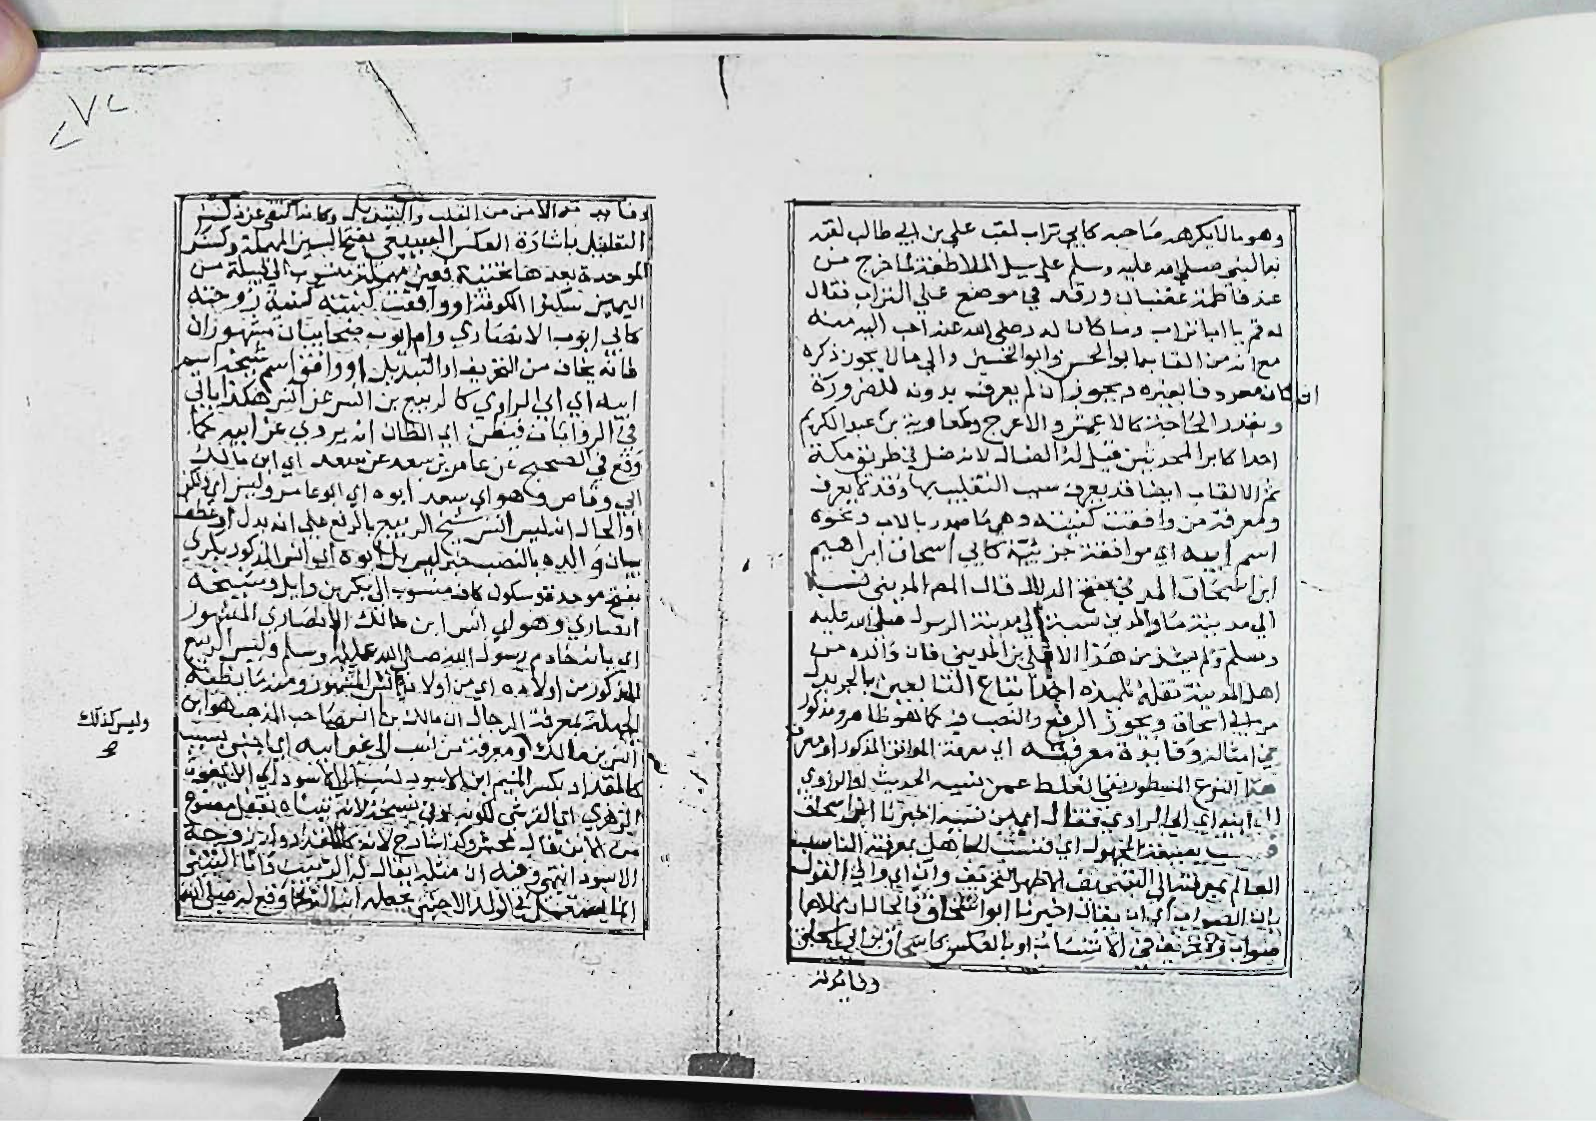 وهو ما لا يكرهه صاحبه كابي تراب لقب علي بن ابي طالب لقبه
به النبي صلى الله عليه وسلم علي سبيل الملاطفة لما خرج من
عند فاطمة غضبان ورقد في موضع علي التراب فقال
له قم يا ابا تراب وما كان له رضي الله عنه احب اليه منه
مع انه من القابه ابو الحسن وابو الحسين والي ما لا يجوز ذكره
ان كان معروفا بغيره ويجوز ان لم يعرف بدونه للضرورة
وبقدر الحاجة كالاعمش والاعرج وكمعاوية بن عبد الكريم
احد اكابر المحدثين قيل له الضال لانه ضل في طريق مكة
ثم الالقاب ايضا قد يعرف سبب التلقيب بها وقد لا يعرف
ومعرفة من وافقت كنيته وهي ما صدر بالاب ونحوه
اسم ابيه اي موافقة جزئية كابي اسحاق ابراهيم
ابن اسحاق المدني بفتح الدال قال المص المديني نسبة
الي مدينة ما والمدني نسبة الي مدينة الرسول صلى الله عليه
وسلم ولم يشذ من هذا الا علي بن المديني فان والده من
اهل المدينة نقله تلميذه احد اتباع التابعين بالجر بدل
من ابي اسحاق ويجوز الرفع والنصب فيه كما هو ظاهر ومذكور
في امثاله وفايدة معرفته اي معرفة الموافق المذكور او معرفة
هذا النوع المسطور نفي الغلط عمن نسبه الحديث او الراوي
الي ابيه اي ابي الراوي فقال اي من نسبه اخبرنا ابن اسحاق
فنسب بصيغة المجهول اي فنسب الجاهل بمعرفة الناسب
العالم بمرتبته الي التصحيف الاظهر التحريف وان اي والي القول
بان الصواب اي ان يقال اخبرنا ابو اسحاق والحال ان كلاهما
صواب ولا تحريف في الانتساب او بالعكس كاسحاق بن ابي اسحاق
وفايدته
وفايدته الامن من القلب والتبديل وكانه اكتفى عن ذكر
التعليل باشارة العكس السبيعي بفتح السين المهملة وكسر
الموحدة بعدها تحتية فعين مهملة منسوب الي قبيلة من
اليمن سكنوا الكوفة او وافقت كنيته كنية زوجته
كابي ايوب الانصاري وام ايوب صحابيان مشهوران
فانه يخاف من التحريف او التبديل او وافق اسم شيخه اسم
ابيه اي ابي الراوي كالربيع بن انس عن انس هكذا ياتي
في الروايات فيظن اي الظان انه يروي عن ابيه كما
وقع في الصحيح عن عامر بن سعد عن سعد اي ابن مالك
ابي وقاص وهو اي سعد ابوه اي ابو عامر وليس اي ذلك
او الحال انه ليس انس شيخ الربيع بالرفع علي انه بدل او عطف
بيان والده بالنصب خبر ليس بل ابوه اي انس المذكور بكري
بفتح موحدة وسكون كاف منسوب الي بكر بن وايل وشيخه
انصاري وهو اي انس ابن مالك الانصاري المشهور
اي بانه خادم رسول الله صلى الله عليه وسلم وليس الربيع
المذكور من اولاده اي من اولاد انس المشهور ومنه ما يظنه
الجهلة بمعرفة الرجال ان مالك بن انس صاحب المذهب هو ابن
انس بن مالك وليس كذلك ومعرفة من نسب الي غير ابيه اي اجنبي بسبب
كالمقداد بكسر الميم ابن الاسود نسب الي الاسود اي ابن يغوث
الزهري اي القرشي لكونه
من الابن قال محش وكذا شارح لانه كان المقداد ولد زوجة
الاسود انتهى وفيه ان مثله يقال له الربيب
انما يستعمل في الولد الاجنبي يجعله ابنا له كما وقع له صلى الله
وليس كذلك